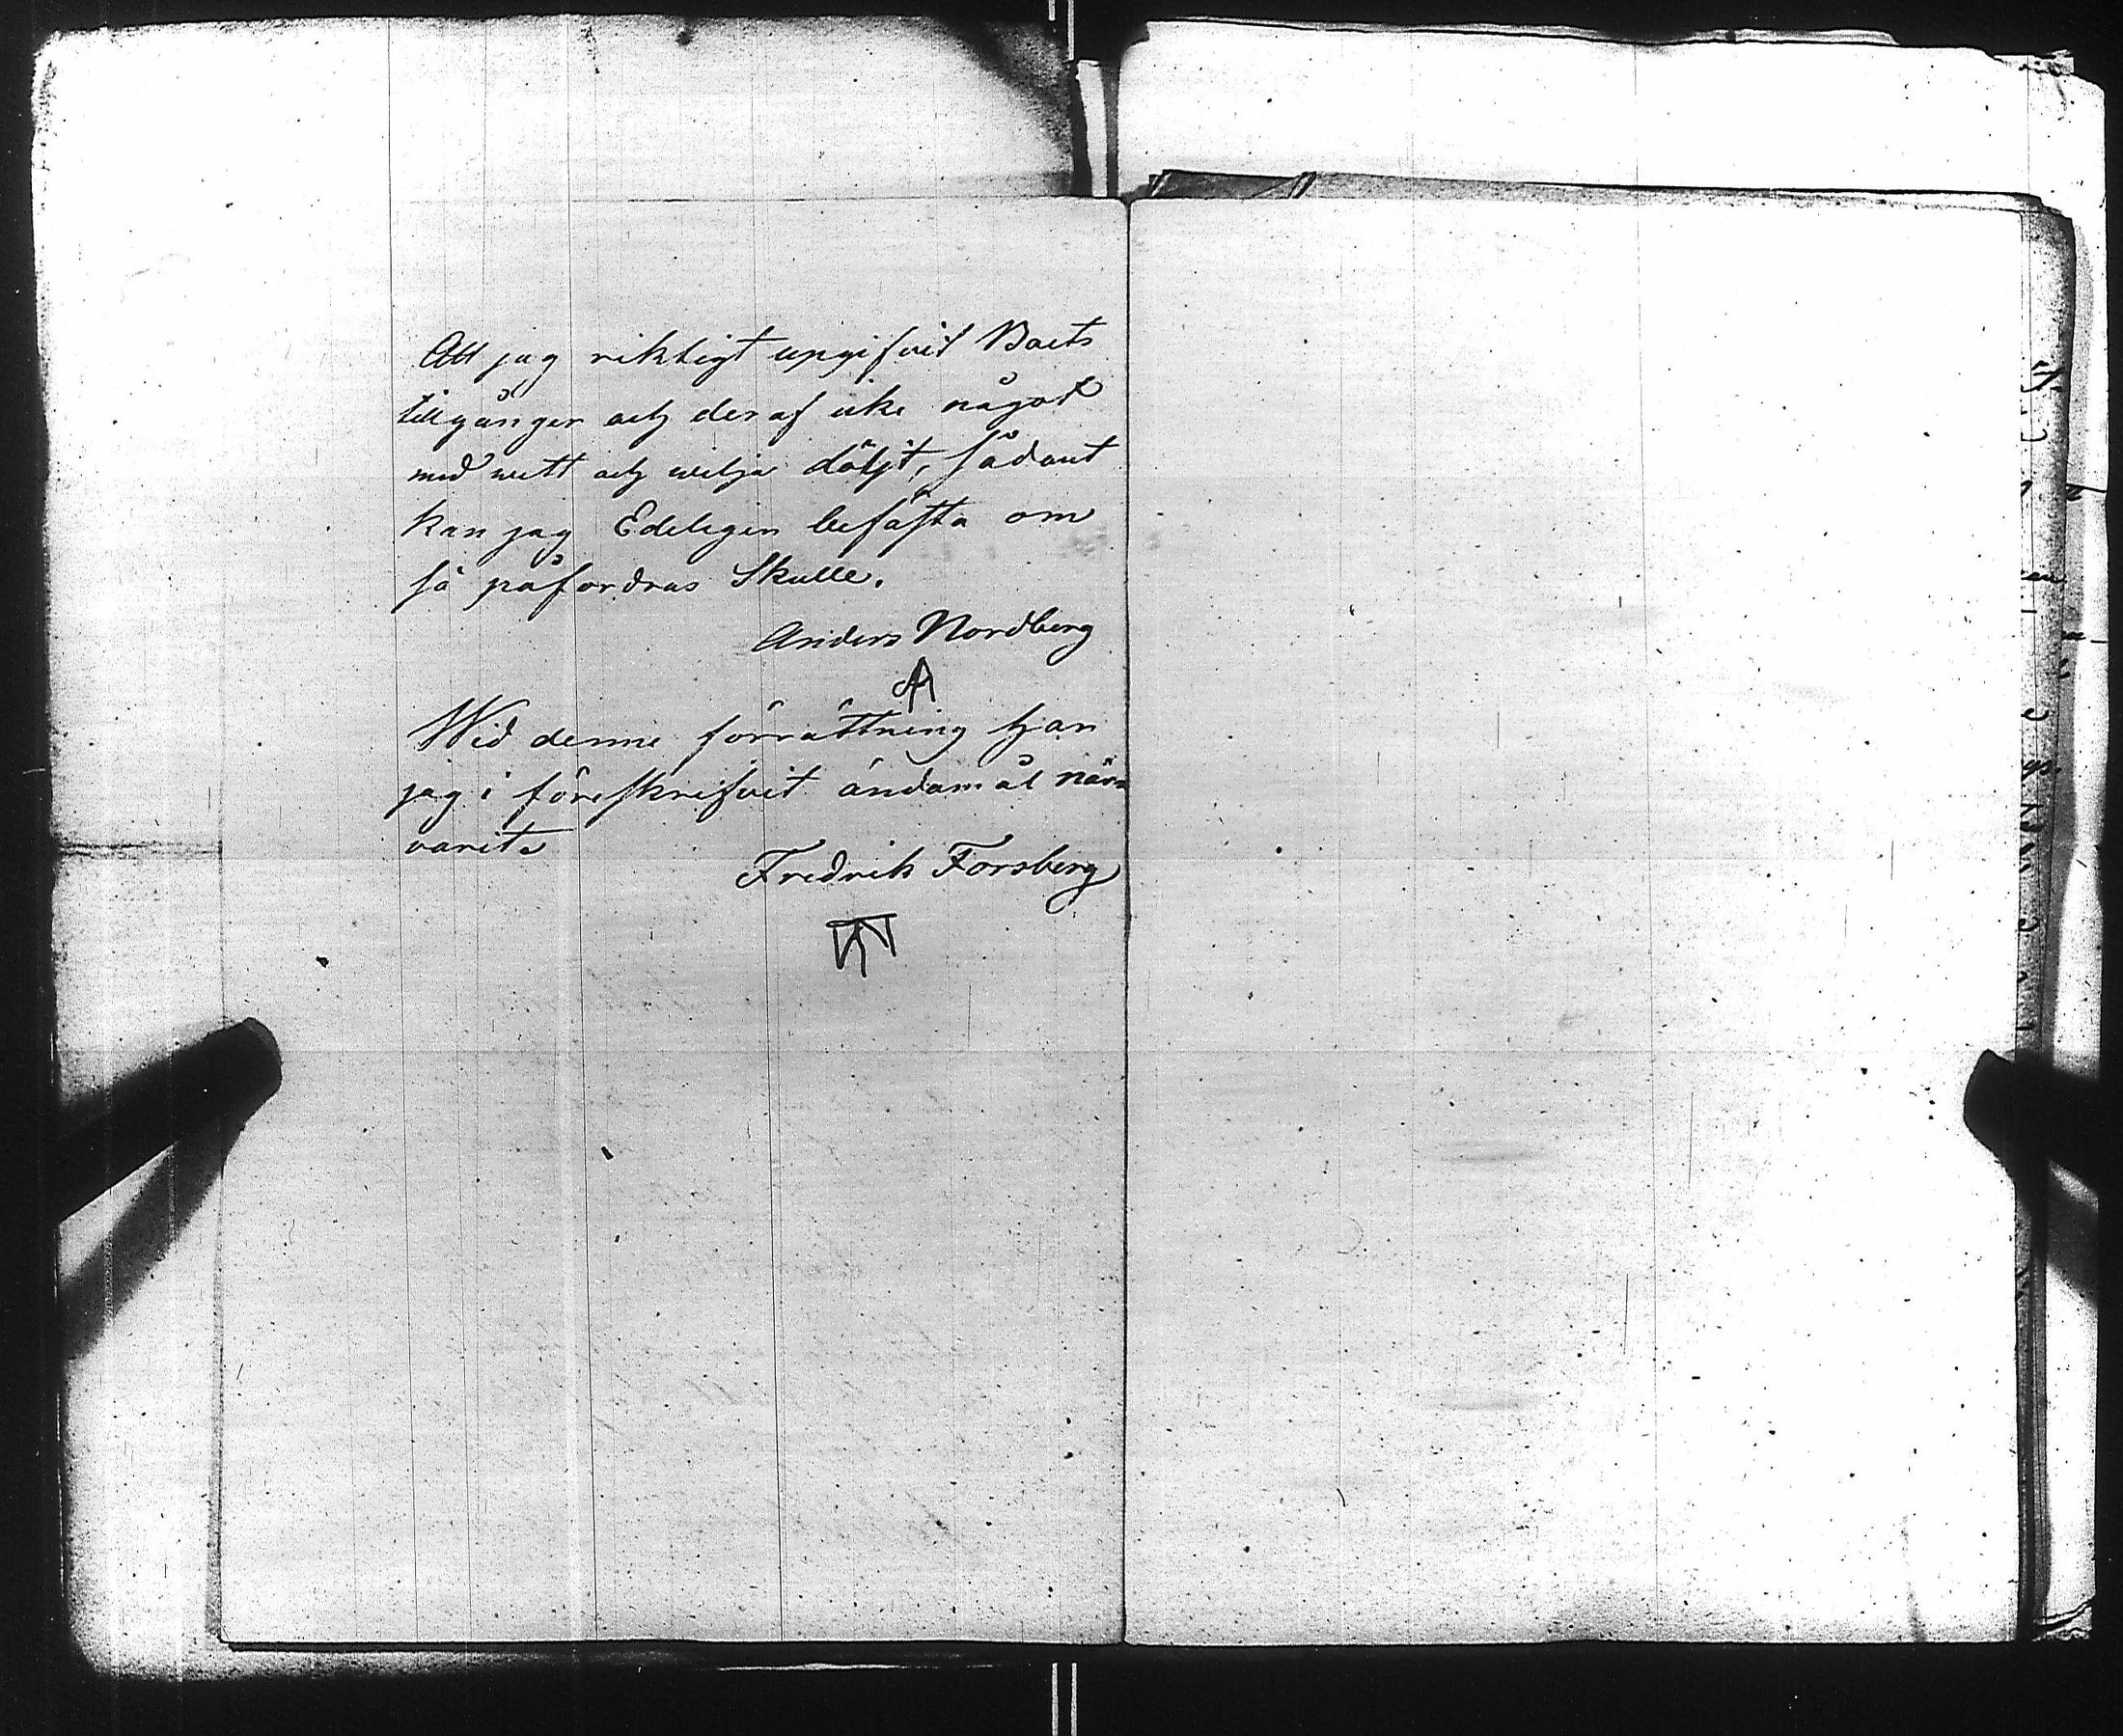 Att jag riktigt upgifvit Boets
tillgånger och deraf icke något
med vett och wilja döljt, sådant
kan jag Edeligen befästa om
så påfordras Skulle.
Anders Nordberg
Wid denne förrättning har
jag i föreskrifvit ändamål när=
varit
Fredrik Forsberg